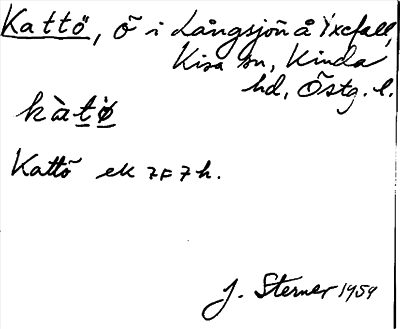 Kattö, ö i Långsjön å Yxefall,
Kisa sn, Kinda
hd, Östg. l.
kàtö
Kattö ek 7F7h.
J. Sterner 1959